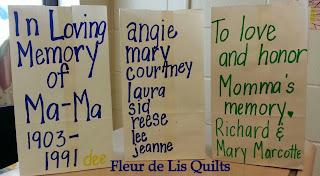 In Loving
Memory
of
Ma-Ma
1903-
1991 dee
angie
mary
courtney
laura
sid
reese
lee
jeanne
To love
and honor
Momma's
memory.
Richard &
Mary Marcotte
Fleur de Lis Quilts